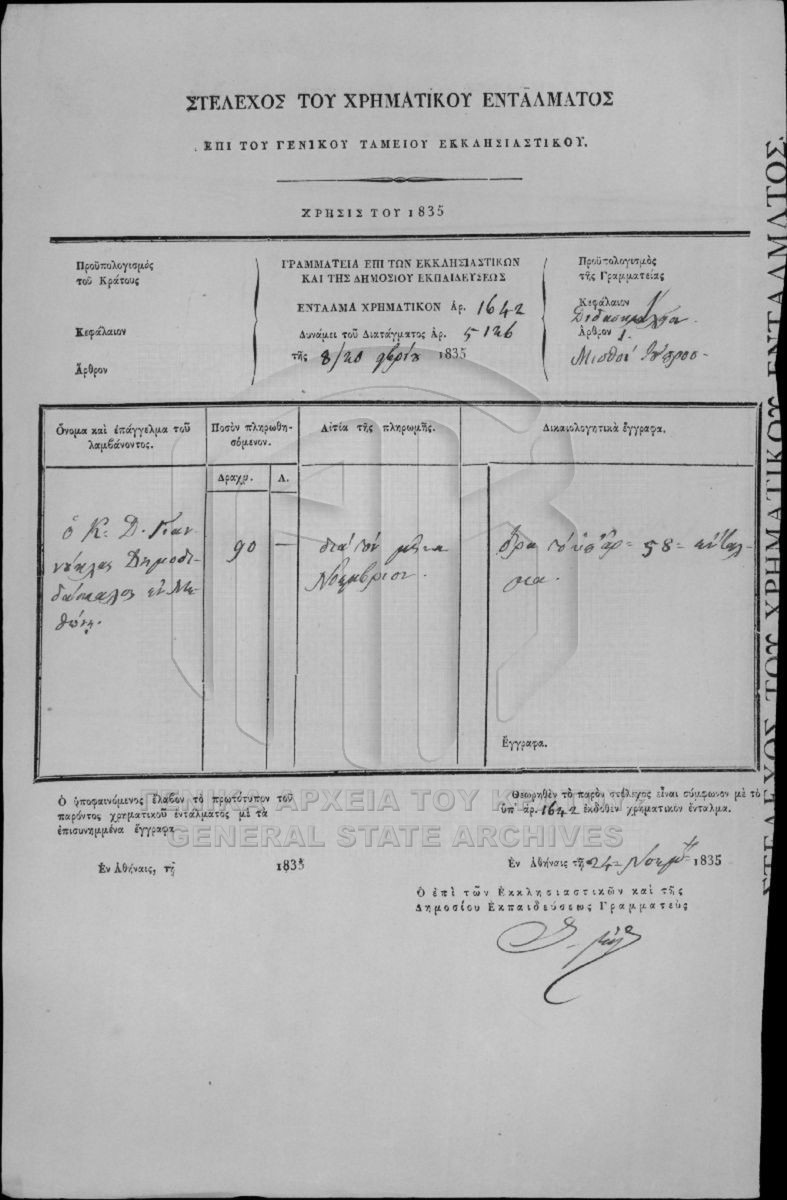 ΣΤΕΛΕΧΟΣ ΤΟΥ ΧΡΗΜΑΤΙΚΟΥ ΕΝΤΑΛΜΑΤΟΣ
ΕΠΙ ΤΟΥ ΓΕΝΙΚΟΥ ΤΑΜΕΙΟΥ ΕΚΚΛΗΣΙΑΣΤΙΚΟΥ.
ΧΡΗΣΙΣ ΤΟΥ 1835
Προϋπολογισμὸς
τοῦ Κράτους
Κεφάλαιον
Ἄρθρον
ΓΡΑΜΜΑΤΕΙΑ ΕΠΙ ΤΩΝ ΕΚΚΛΗΣΙΑΣΤΙΚΩΝ
ΚΑΙ ΤΗΣ ΔΗΜΟΣΙΟΥ ΕΚΠΑΙΔΕΥΣΕΩΣ
ΕΝΤΑΛΜΑ ΧΡΗΜΑΤΙΚΟΝ Ἀρ. 1642
Δυνάμει τοῦ Διατάγματος Ἀρ. 5126
τῆς 8/20 1835
Προϋπολογισμὸς
τῆς Γραμματείας
Κεφάλαιον
Ἄρθρον 1.
Μισθοὶ
Ὄνομα καὶ ἐπάγγελμα τοῦ
λαμβάνοντος.
Ποσὸν πληρωθη-
σόμενον.
Αἰτία τῆς πληρωμῆς.
Δικαιολογητικὰ ἔγγραφα.
Δραχμ.
Λ.
ὁ Κ: Δ. Γιαν
Δημοδι
δάσκαλος ἐν Με
θώνῃ.
90 —
διὰ τὸν μῆνα
Νοέμβριον.
ὅρα τὸ ὑπ' ἀρ = 58 =
Ἔγγραφα.
Ὁ ὑποφαινόμενος ἔλαβον τὸ πρωτότυπον τοῦ
παρόντος χρηματικοῦ ἐντάλματος μὲ τὰ
ἐπισυνημμένα ἔγγραφα
Ἐν Ἀθήναις, τῇ 1835
Θεωρηθὲν τὸ παρὸν στέλεχος εἶναι σύμφωνον μὲ τὸ
ὑπ' ἀρ. 1642 ἐκδοθὲν χρηματικὸν ἔνταλμα.
Ἐν Ἀθήναις τῇ 24 1835
Ὁ ἐπὶ τῶν Ἐκκλησιαστικῶν καὶ τῆς
Δημοσίου Ἐκπαιδεύσεως Γραμματεὺς
ΓΕΝΙΚΑ ΑΡΧΕΙΑ ΤΟΥ
GENERAL STATE ARCHIVES
ΣΤΕΛΕΧΟΣ ΤΟΥ ΧΡΗΜΑΤΙΚΟΥ ΕΝΤΑΛΜΑΤΟΣ.